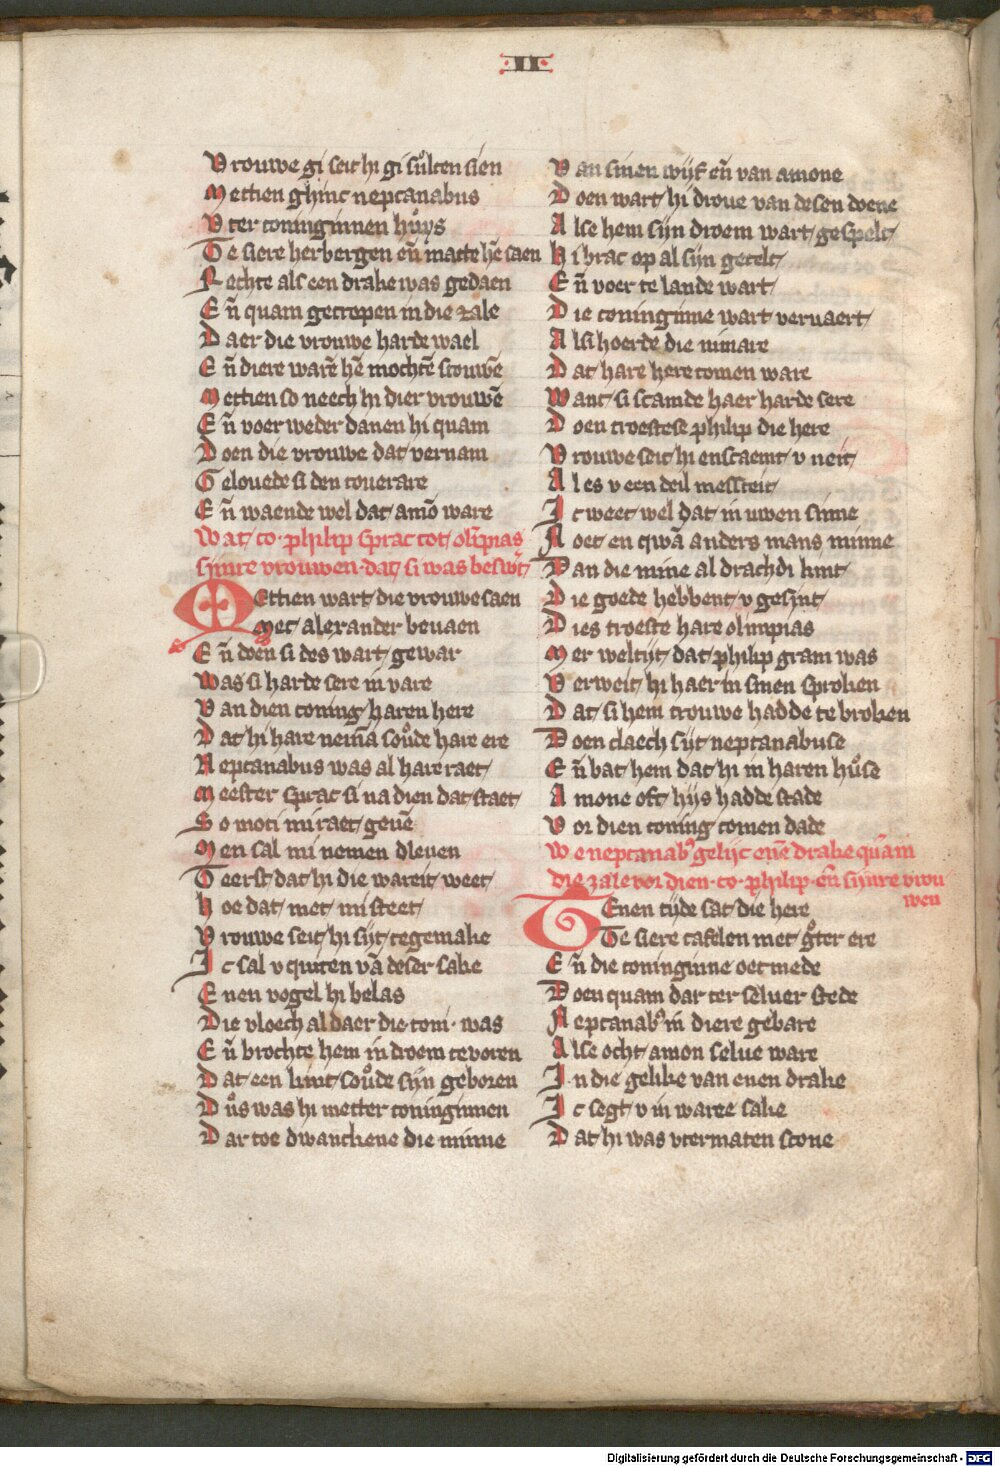 II
Vrouwe gi seit hi gi sůlten sien
Mettien ghinc neptanabus
Vter coninginnen hůys
Te siere herbergen eñ maecte hē saen
Rechte als een drake was gedaen
Eñ quam gecropen in die zale
Daer die vrouwe harde wael
Eñ diere warē hē mochtē scouwē
Mettien so neech hi dier vrouwē
Eñ voer weder danen hi quam
Doen die vrouwe dat vernam
Gelouede si den touerare
Eñ waende wel dat amō ware
Wat co. philip sprac tot olīpias
sijnre vrouwen. dat si was beswt
Mettien wart die vrouwe saen
Met alexander beuaen
Eñ doen si des wart gewar
Was si harde sere in vare
Van dien coning haren here
Dat hi hare nemā soůde hare ere
Neptanabus was al hare raet
Meester sprac si na dien dat staet
So moti mi raet geuē
Men sal mi nemen dleuen
Teerst dat hi die wareit weet
Hoe dat met mi steet
Vrouwe seit hi sijt tegemake
Ic sal v quiten vā deser sake
Enen vogel hi belas
Die vloech al daer die coni. was
Eñ brochte hem in droem te voren
Dat een kint soůde sijn geboren
Důs was hi metter coninginnen
Dar toe dwanckene die minne
Van sinen wijf eñ van amone
Doen wart hi droue van desen doene
Alse hem sijn droem wart gespelt
Hi brac op al sijn getelt
Eñ voer te lande wart
Die coninginne wart veruaert
Alsi hoerde die nimare
Dat hare here comen ware
Want si scamde haer harde sere
Doen troestese philip die here
Vrouwe seit hi enscaemt v neit
Al es v een deil messceit
Ic weet wel dat in uwen sinne
Noet en qwā anders mans minne
Dan die mine al drachdi kint
Die goede hebbent v gesint
Dies troeste hare olimpias
Mer weltijt dat philip gram was
Verweit hi haer in sinen sproken
Dat si hem trouwe hadde te broken
Doen claech sijt neptanabuse
Eñ bat hem dat hi in haren hůse
Amone oft hijs hadde stade
Vor dien coning comen dade
We neptanab⁹ gelijc enē drake quam
die zale vor dien. co. philip. eñ sijnre vrou
wen
TEnen tijde sat die here
Te siere tafelen met gͦter ere
Eñ die coninginne oec mede
Doen quam dar ter seluer stede
Neptanab⁹ in diere gebare
Alse ocht amon selue ware
In die gelike van enen drake
Ic segt v in waree sake
Dat hi was vtermaten scone
Digitalisierung gefördert durch die Deutsche Forschungsgemeinschaft - DFG